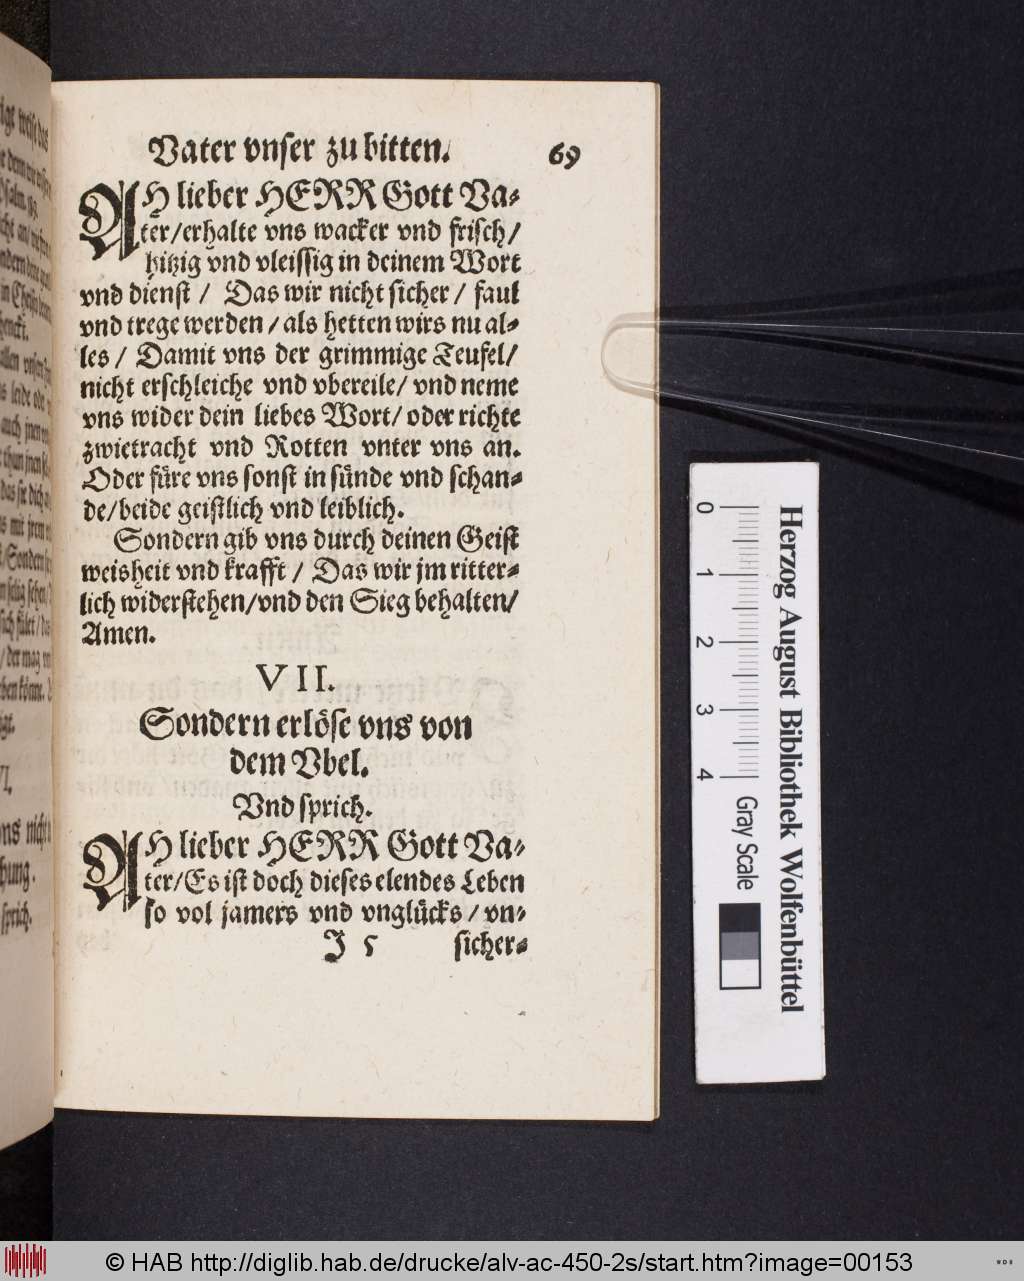 Vater vnser zu bitten. 69
AH lieber HERR Gott Va-
ter/erhalte vns wacker vnd frisch/
hitzig vnd vleissig in deinem Wort
vnd dienst / Das wir nicht sicher / faul
vnd trege werden / als hetten wirs nu al-
les / Damit vns der grimmige Teufel/
nicht erschleiche vnd vbereile/ vnd neme
vns wider dein liebes Wort/ oder richte
zwietracht vnd Rotten vnter vns an.
Oder füre vns sonst in sünde vnd schan-
de/beide geistlich vnd leiblich.
Sondern gib vns durch deinen Geist
weisheit vnd krafft / Das wir jm ritter-
lich widerstehen/vnd den Sieg behalten/
Amen.
VII.
Sondern erlöse vns von
dem Vbel.
Vnd sprich.
AH lieber HERR Gott Va-
ter/Es ist doch dieses elendes Leben
so vol jamers vnd vnglücks / vn-
J 5 sicher-
Herzog August Bibliothek Wolfenbüttel
0 1 2 3 4 Gray Scale
© HAB http://diglib.hab.de/drucke/alv-ac-450-2s/start.htm?image=00153